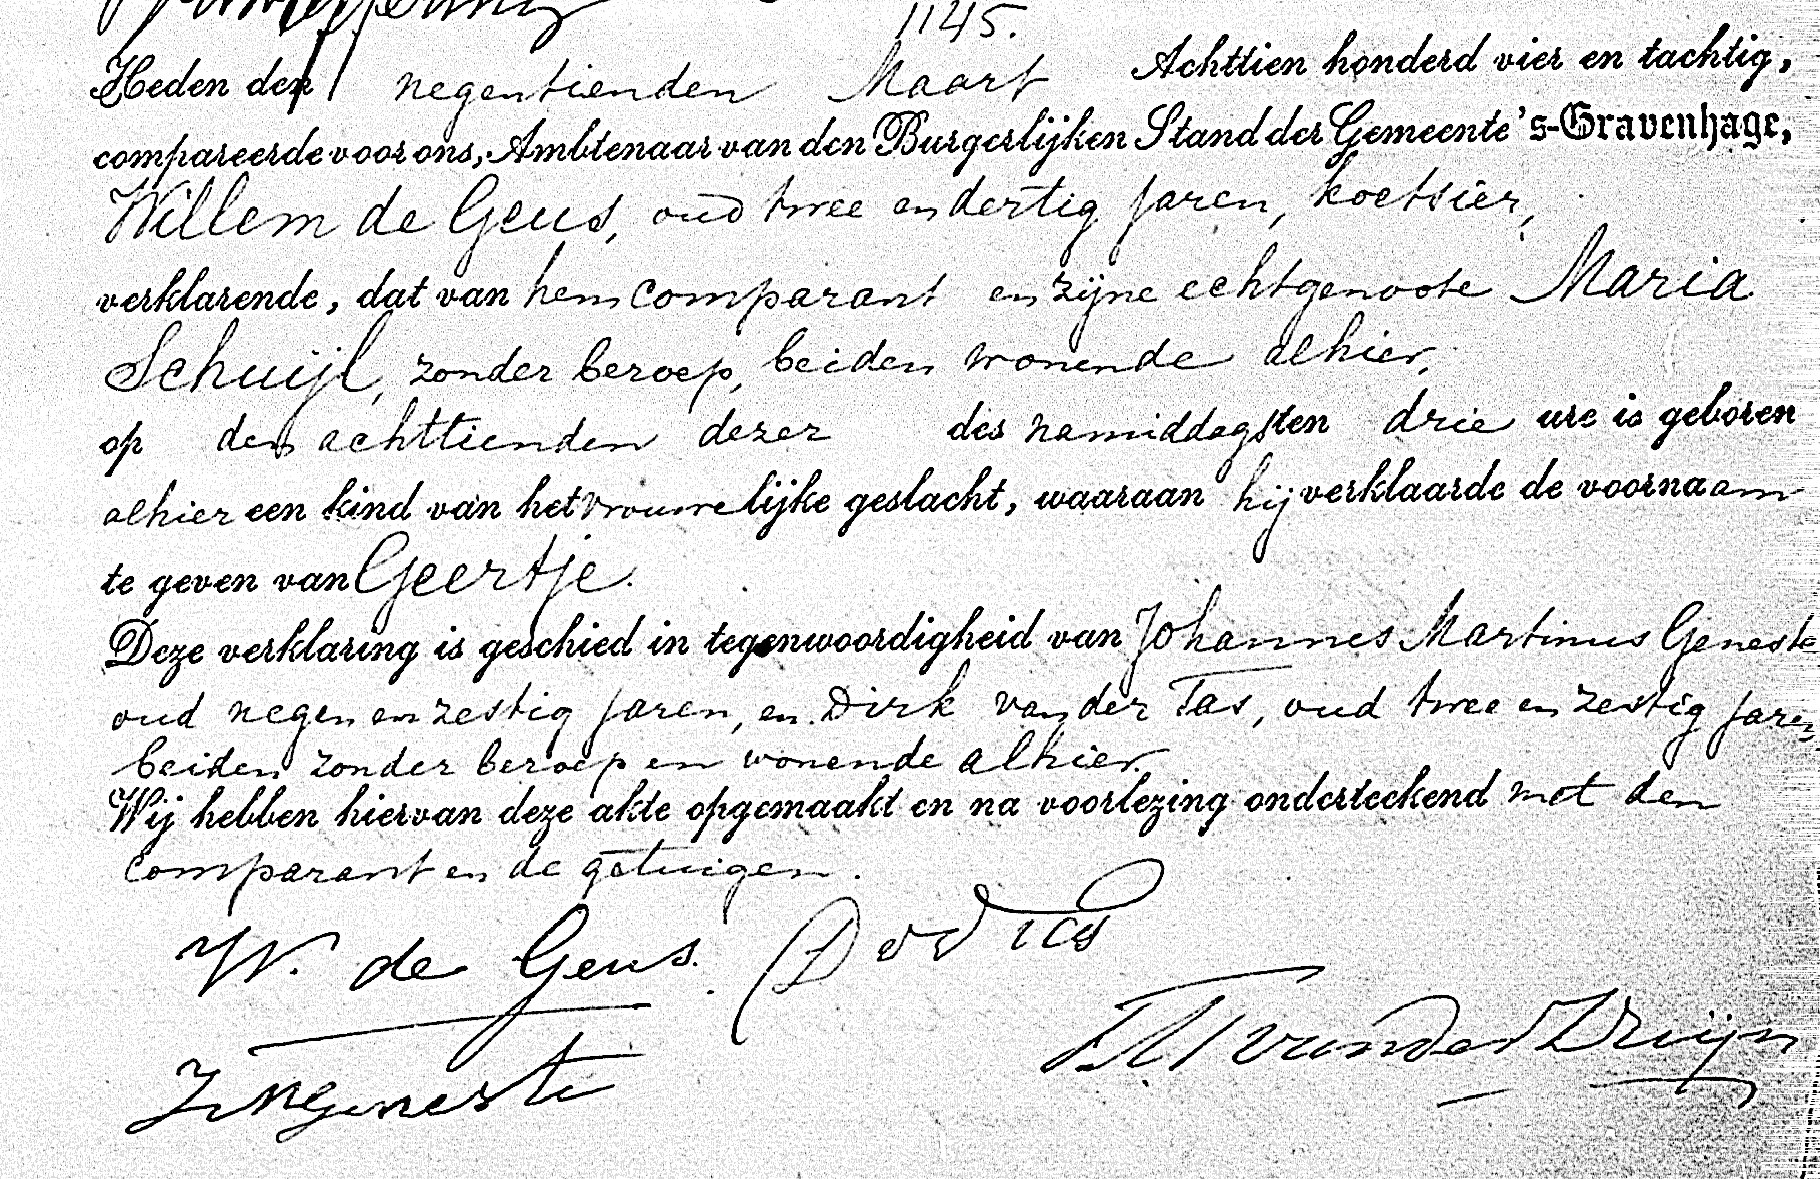 1145.
Heden den negentienden Maart Achttien honderd vier en tachtig,
compareerde voor ons, Ambtenaar van den Burgerlijken Stand der Gemeente 's-Gravenhage,
Willem de Geus, oud twee en dertig jaren, koetsier,
verklarende, dat van hem comparant en zijne echtgenoote Maria
Schuijl, zonder beroep, beiden wonende alhier,
op den achttienden dezer des namiddags ten drie ure is geboren
alhier een kind van het vrouwelijke geslacht, waaraan hij verklaarde de voornaam
te geven van Geertje.
Deze verklaring is geschied in tegenwoordigheid van Johannes Martinus Geneste
oud negen en zestig jaren, en Dirk van der Tas, oud twee en zestig jaren,
beiden zonder beroep en wonende alhier
Wij hebben hiervan deze akte opgemaakt en na voorlezing onderteekend met den
comparant en de getuigen.
W. de Geus.
JMGeneste